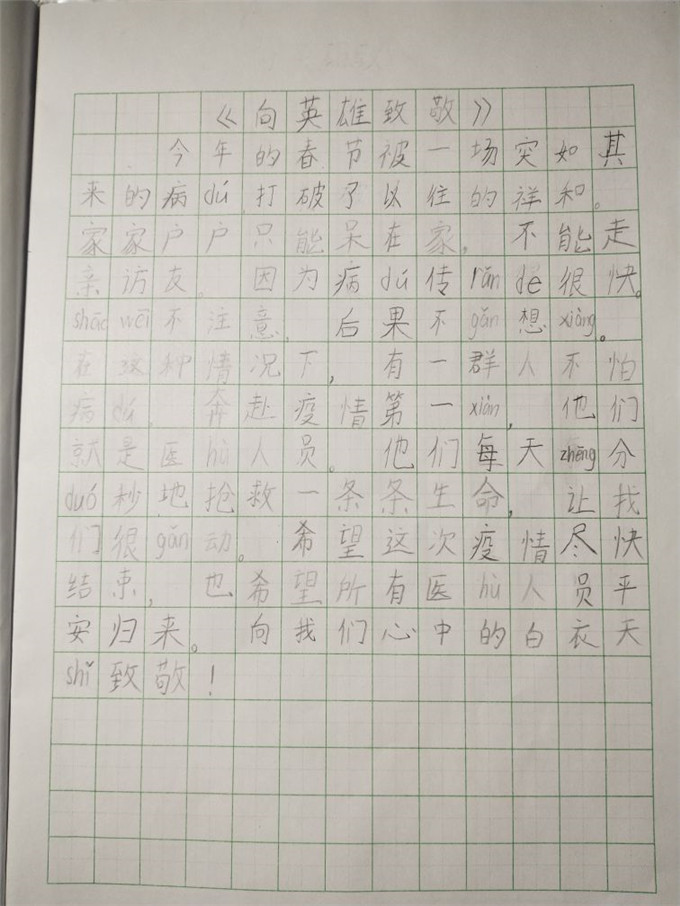 《向英雄致敬》
今年的春节被一场突如其
来的病dú,打破了以往的祥和。
家家户户只能呆在家,不能走
亲访友。因为病dú传rǎn de很快。
shāo wēi不注意,后果不gǎn想xiàng。
在这种情况下,有一群人不怕
病dú,奔赴疫情第一xiàn,他们
就是医hù人员。他们每天zhēng分
duó秒地抢救一条条生命,让我
们很gǎn动。希望这次疫情尽快
结束,也希望所有医hù人员平
安归来。向我们心中的白衣天
shǐ致敬!